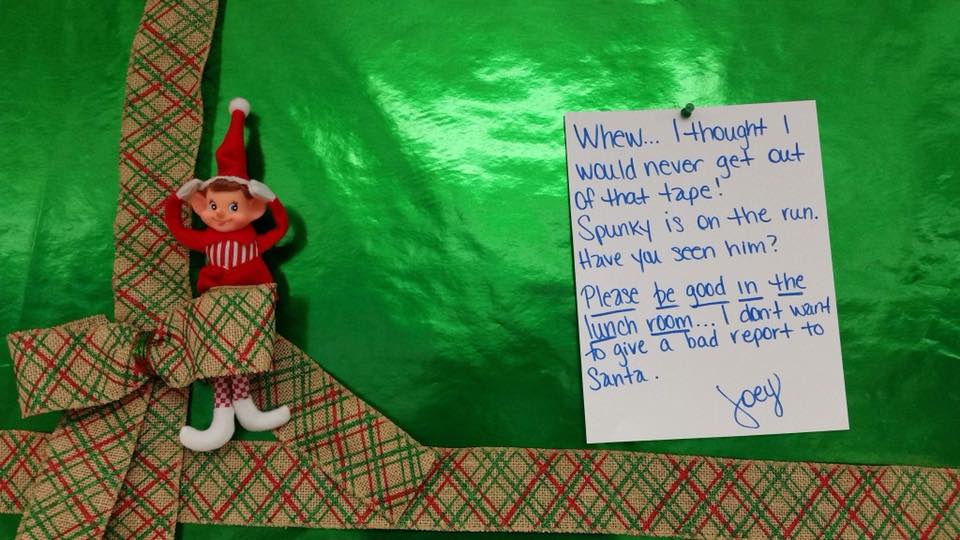 Whew... I thought I
would never get out
of that tape!
Spunky is on the run.
Have you seen him?
Please be good in the
lunch room... I don't want
to give a bad report to
Santa.
Joey